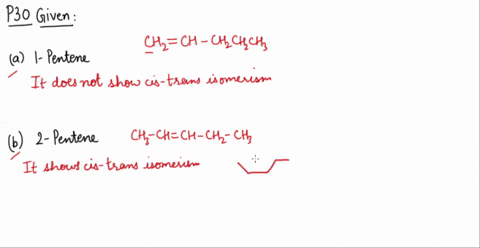 P30 Given:
CH₂=CH-CH₂CH₂CH₃
(a) 1-Pentene
It does not show cis-trans isomerism
(b) 2-Pentene CH₃-CH=CH-CH₂-CH₃
It shows cis-trans isomerism